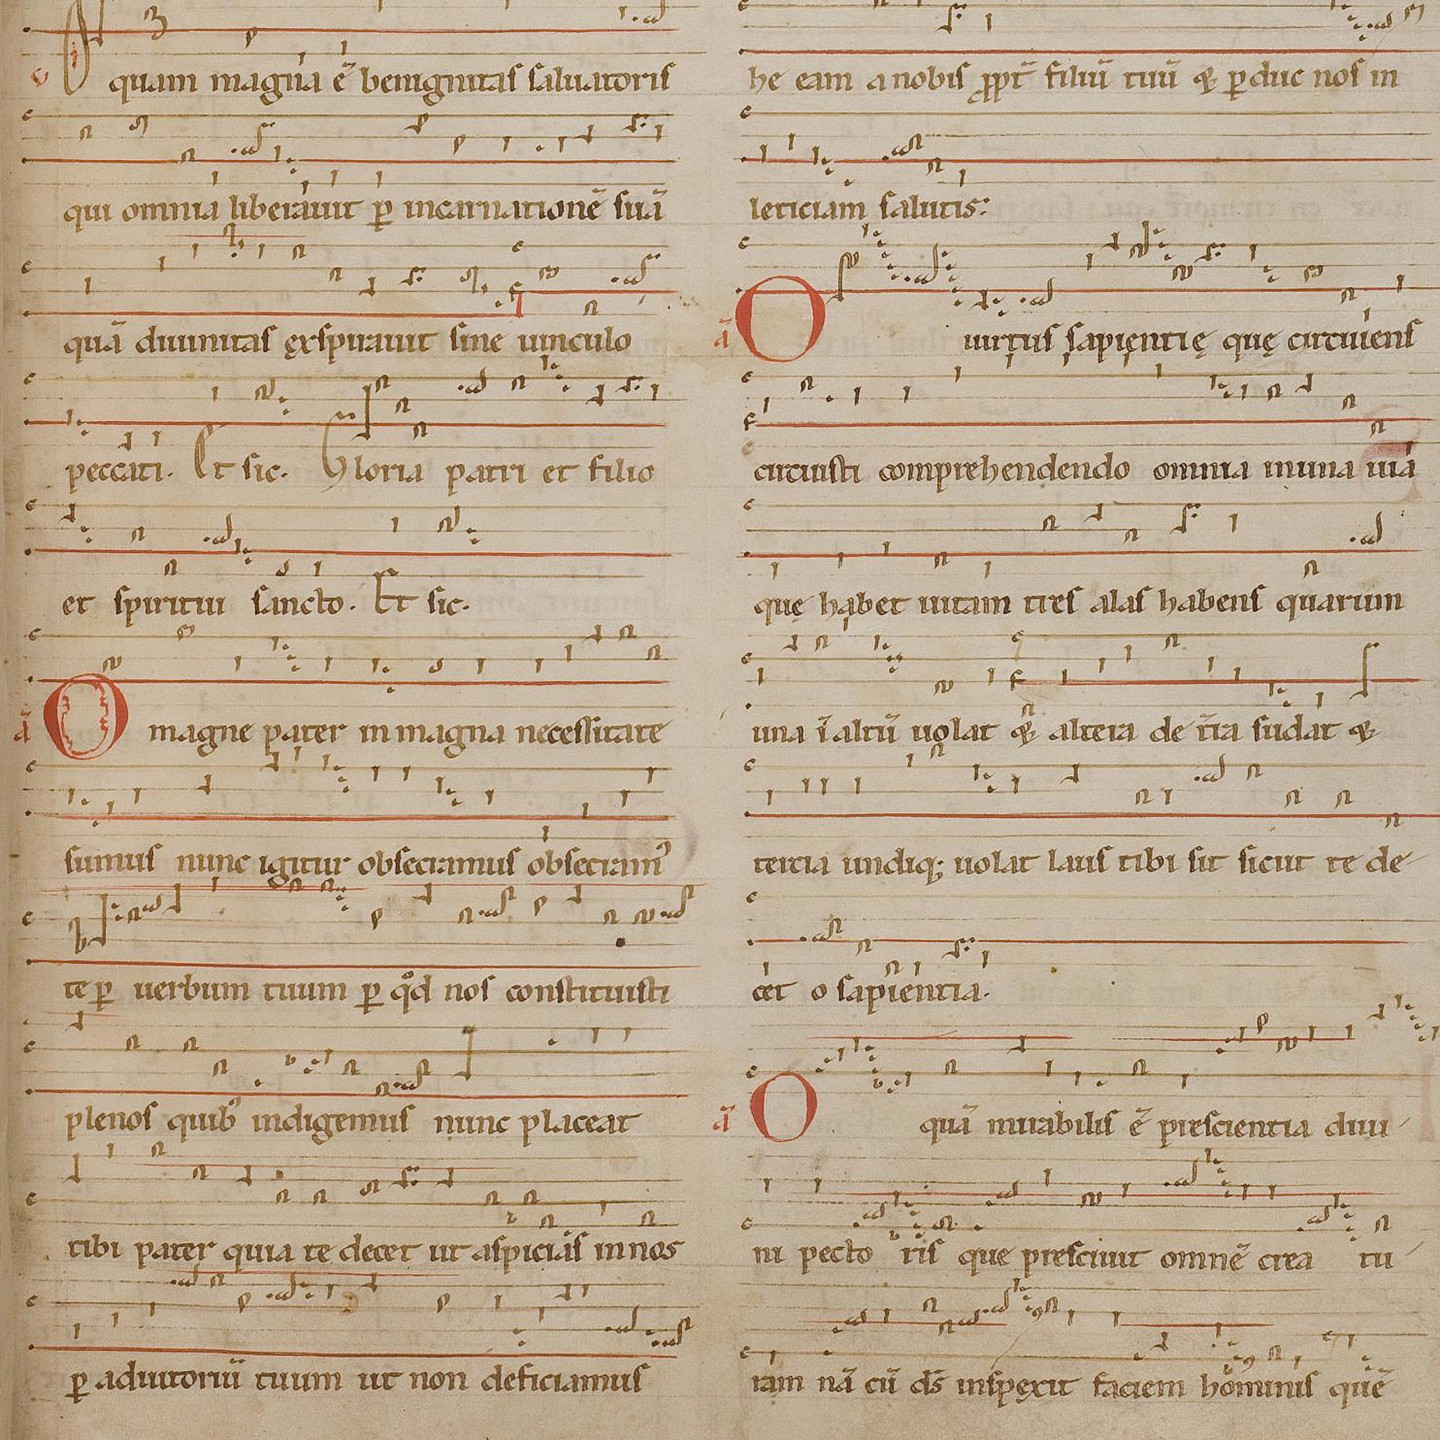 quam magna ē benignitas saluatoris
qui omnia liberauit ꝑ incarnationē suā
quā diuinitas exspirauit sine uinculo
peccati. Et sic. Gloria patri et filio
et spiritui sancto. Et sic.
ā O magne pater in magna necessitate
sumus nunc igitur obsecramus obsecram᾽
te ꝑ uerbum tuum ꝑ qd nos constituisti
plenos quib᾽ indigemus nunc placeat
tibi pater quia te decet ut aspicias in nos
ꝑ adiutoriū tuum ut non deficiamus
he eam a nobis ꝓpt̄ filiū tuū ꝑduc nos in
leticiam salutis:
ā O uirtus sapientię quę circuiens
circuisti comprehendendo omnia in una uia
quę habet uitam tres alas habens quarum
una ī altū uolat altera de t̄ra sudat
tercia undiq; uolat laus tibi sit sicut te de
cet o sapientia.
ā O quā mirabilis ē prescientia diui
ni pecto ris que presciuit omnē crea tu
ram nā cū ds̄ inspexit faciem hominis quē